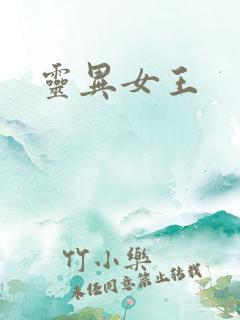 靈異女王
竹小樂
未經同意禁止轉載